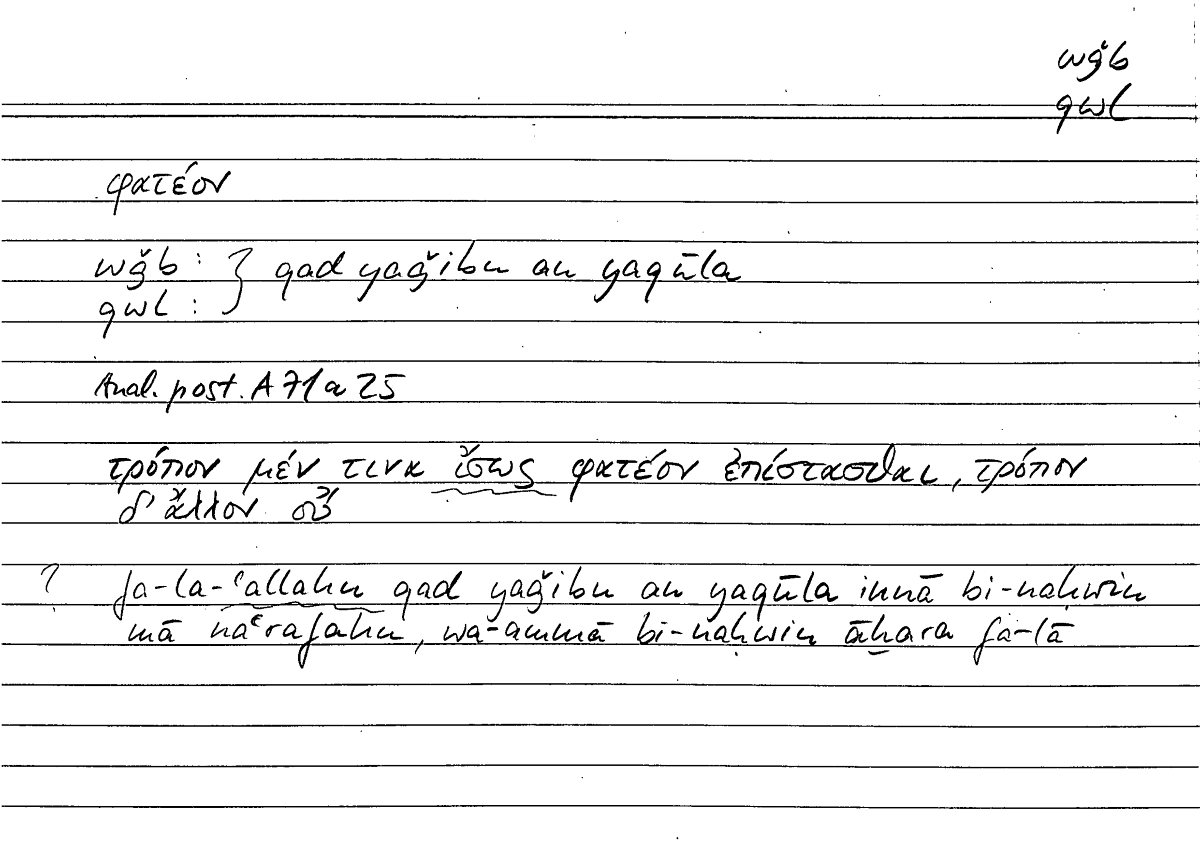 wǧb
qwl
φατέον
wǧb : } qad yaǧibu an yaqūla
qwl :
Anal. post. A 71a25
τρόπον μέν τινα ἴσως φατέον ἐπίστασθαι, τρόπον
δ’ ἄλλον οὔ
? fa-la-ʿallahu qad yaǧibu an yaqūla innā bi-naḥwin
mā naʿrafahu, wa-ammā bi-naḥwin āḫara fa-lā